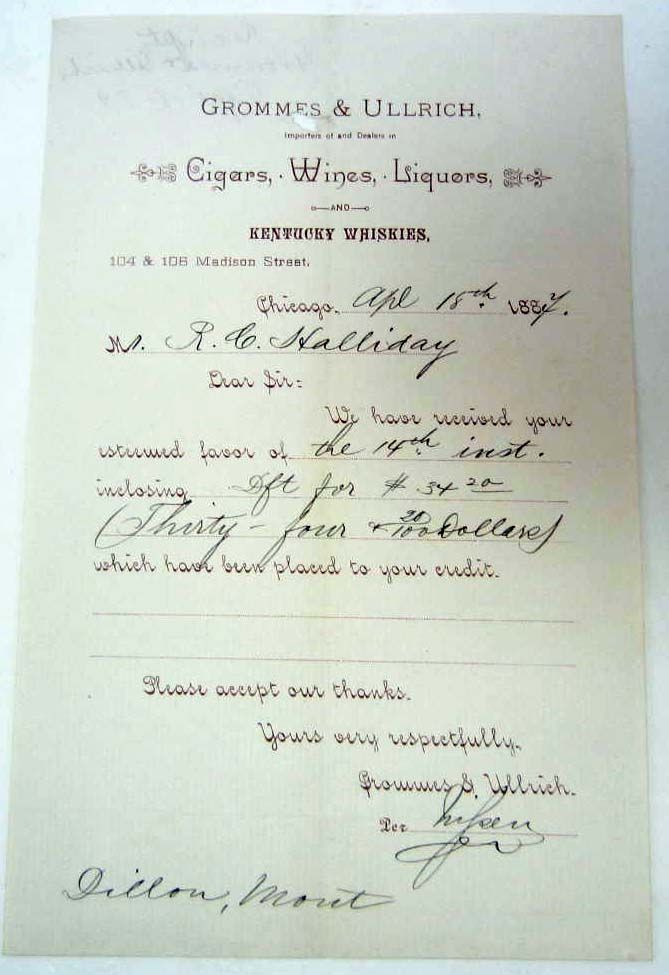 GROMMES & ULLRICH,
Importers of and Dealers in
Cigars, · Wines, · Liquors,
AND
KENTUCKY WHISKIES,
104 & 106 Madison Street.
Chicago, Apl 18th 1887.
Mr. R. C. Halliday
Dear Sir:
We have received your
esteemed favor of the 14th inst.
inclosing Dft for $ 34 20
(Thirty-four & 20/100 Dollars)
which have been placed to your credit.
Please accept our thanks.
Yours very respectfully,
Grommes & Ullrich.
Per
Dillon, Mont